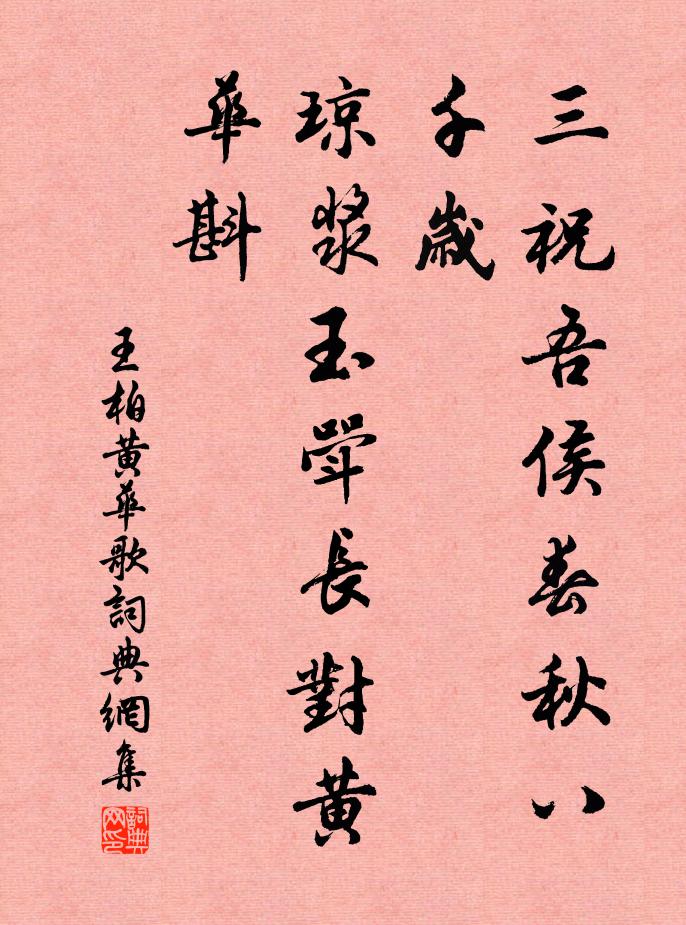 三祝吾侯春秋八
千歲
琼漿玉斝長對黃
華斟
王柏黃華歌詞典網集
詞典网印